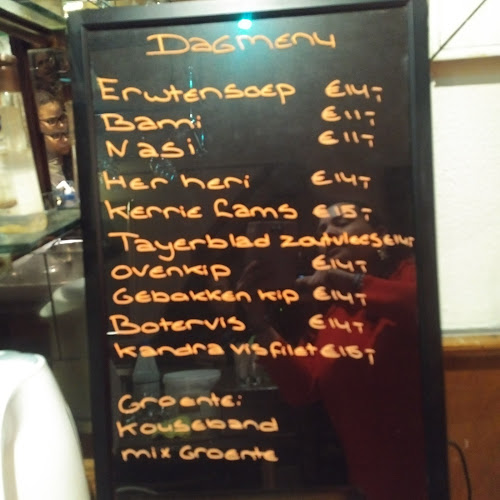 Dagmenu
Erwtensoep €14,-
Bami €11,-
Nasi €11,-
Her heri €14,-
Kerrie Lams €15,-
Tayerblad zoutvlees €14,-
Ovenkip €14,-
Gebakken kip €14,-
Botervis €14,-
Kandra visfilet €15,-
Groente:
Kouseband
mix Groente